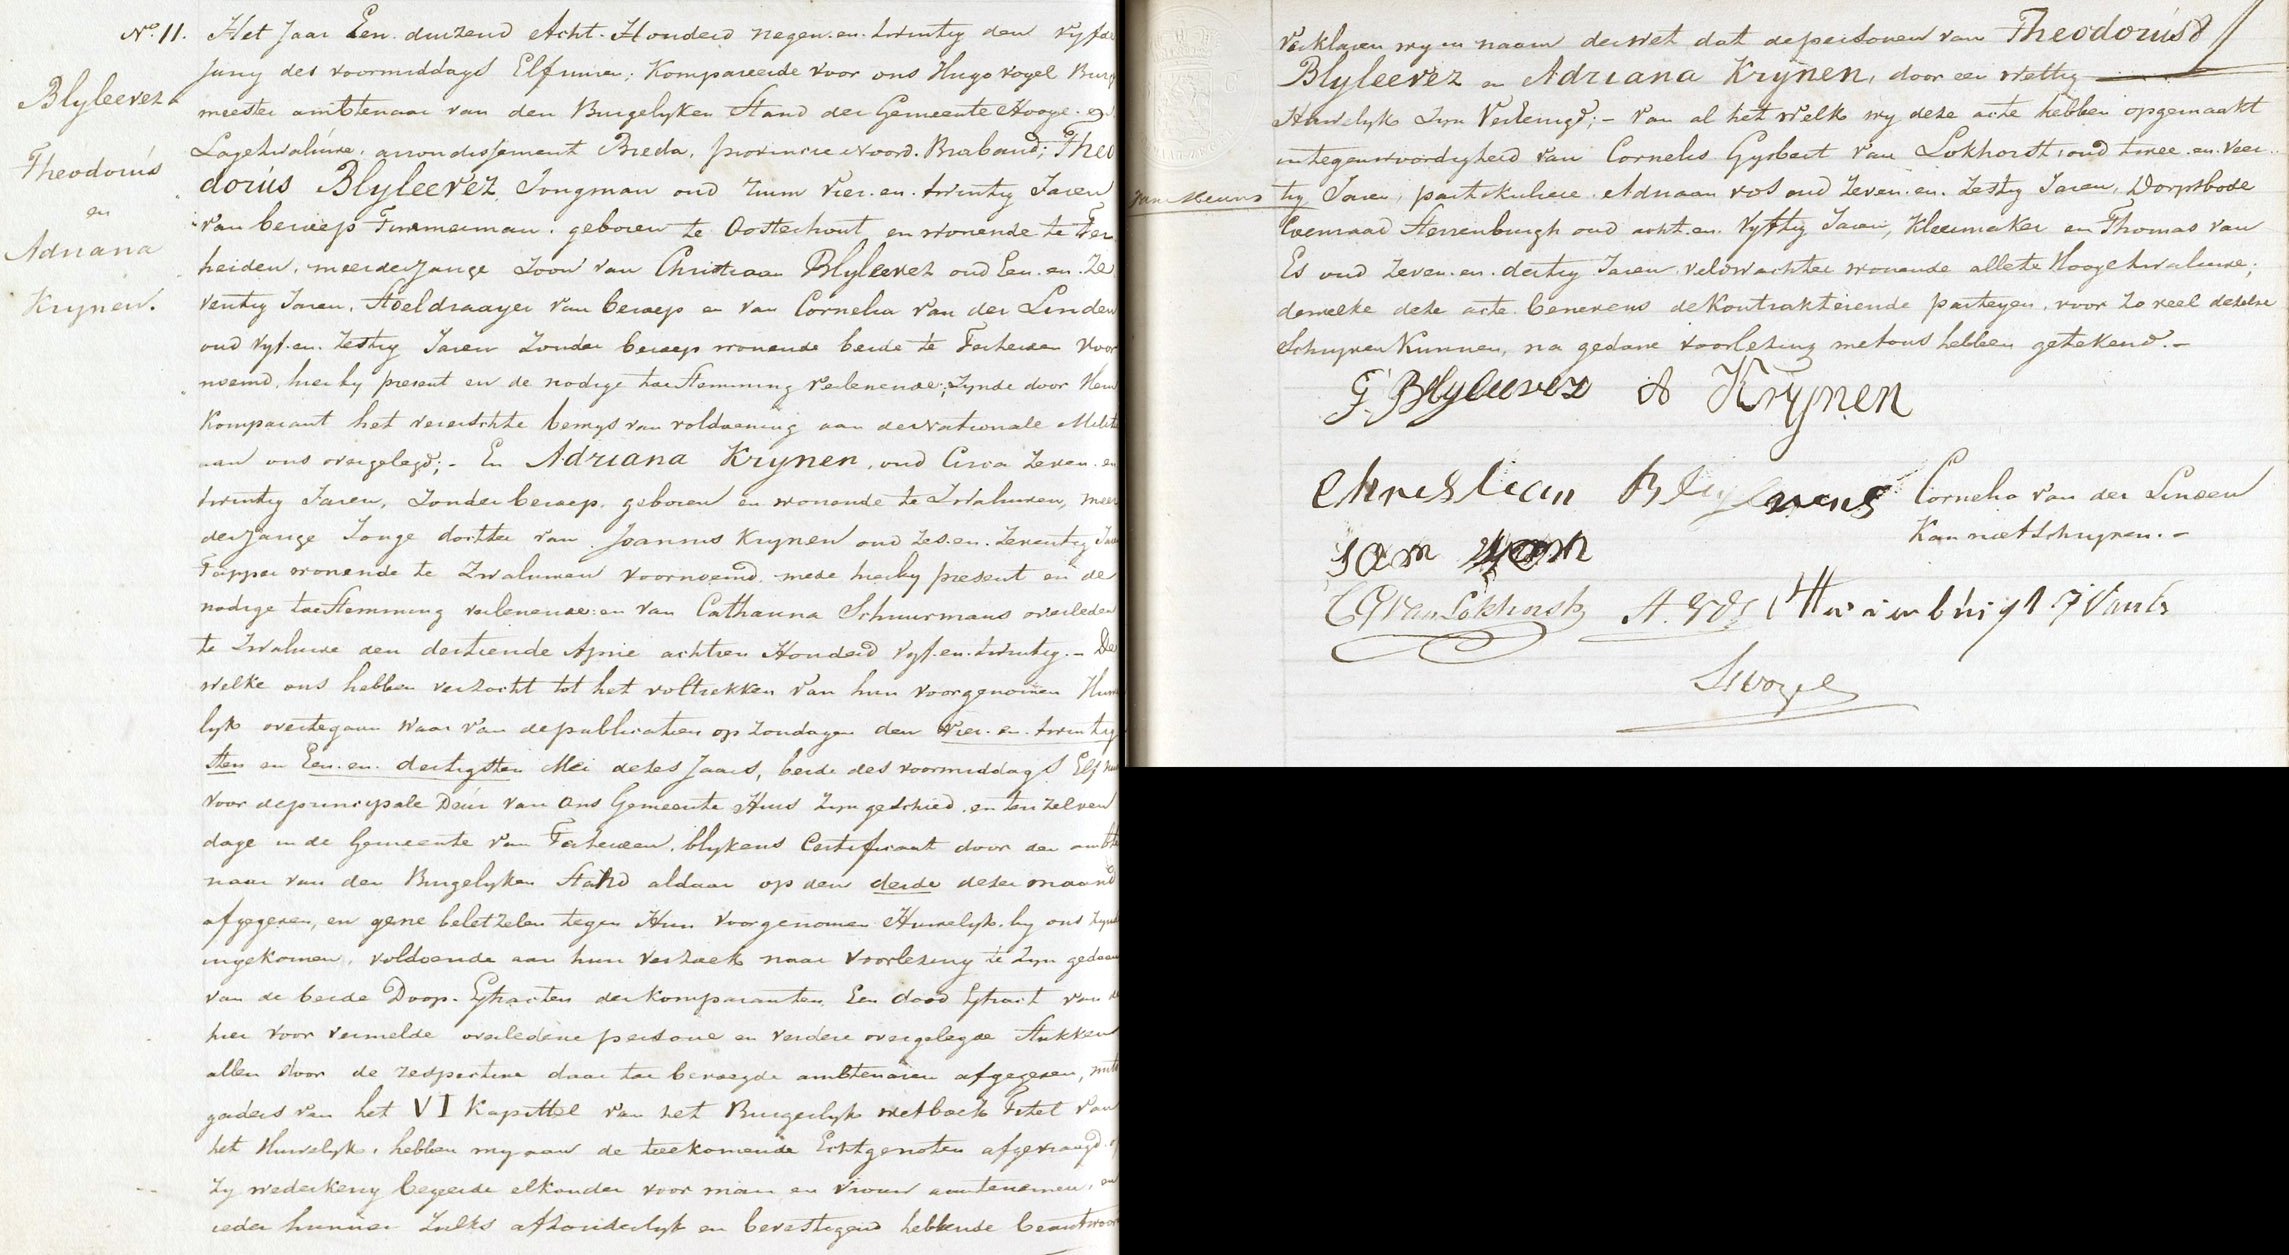 No. 11.
Blyleevez
Theodorús
en
Adriana
Krynen.
Het Jaar Een duizend Acht-Honderd negen-en-twintig den vyfde
Juny des voormiddags Elf uuren; Kompareerde voor ons Hugo vogel Burge
meester ambtenaar van den Burgelyken Stand der Gemeente Hooge- en
Lagezwaluwe, arrondissement Breda, provincie Noord-Braband; Theo
dorús Blyleevez Jongman oud ruim vier-en-twintig Jaren
van beroep Timmerman, geboren te Oosterhout en wonende te Ter
heiden, meerderjange Zoon van Christiaan Blyleevez oud Een-en-Ze
ventig Jaren, Stoeldraayer van beroep en van Cornelia van der Linden
oud vyf-en-Zestig Jaren Zonder beroep wonende beide te Terheiden voor
noemd, hierby present en de nodige toestemming verlenende; Zynde door Hem
Komparant het vereischte bewys van voldoening aan de Nationale Milit
aan ons overgelegd;- En Adriana Krynen, oud Circa Zeven-en
twintig Jaren, Zonder beroep, geboren en wonende te Zwaluwen, meer
derjange Jonge dochter van Joannis Krynen oud Zes-en-Zeventig Jaren
Tapper wonende te Zwaluwen voornoemd, mede hierby present en de
nodige toestemming verlenende: en van Catharina Schuurmans overleden
te Zwaluwe den dertiende April achtien Honderd vyf-en-twintig.- De
welke ons hebben verzocht tot het voltrekken van hun voorgenomen Huwe
lyk overtegaan waar van de publicatien op Zondagen den vier-en-twintig
sten en Een-en-dertigsten Mei dezes Jaars, beide des voormiddags Elf uur
voor de principale Deúr van Ons Gemeente Huis Zyn geschied en ten zelven
dage in de Gemeente van Terheiden, blykens Certificaat door den ambte
naar van den Burgelyken Stand aldaar op den derde dezer maand
afgegeven, en gene beletzelen tegen Hun voorgenomen Huwelyk by ons zynde
ingekomen, voldoende aan hun verzoek naar voorlezing te Zyn gedaan
van de beide Doop-Extracten der Komparanten, Een dood Extract van de
hier voor vermelde overledene persone en verdere overgelegde Stukken
allen door de respective daar toe bevoegde ambtenaren afgegeven, mits
gaders van het VI Kapittel van het Burgerlyk Wetboek Titel van
het Huwelyk, hebben wy aan de toekomende Echtgenoten afgevraagd of
Zy wederkerig begeerde elkander voor man en vrouw aantenemen, en
ieder hunner Zulks afzonderlyk en bevestigend hebbende beantwoor
verklaren wy in naam der wet dat de personen van Theodorús
Blyleevez en Adriana Krynen, door een wettig
Huwelyk Zyn Vereenigd;- van al het welk wy deze acte hebben opgemaakt
in tegenwoordigheid van Cornelis Gysbert van Lokhorst, oud twee-en-veer
tig Jaren, partikuliere, Adriaan vos oud Zeven-en-Zestig Jaren, Dorpsbode
Coenraad Sterrenburgh oud acht-en-vyftig Jaren, Kleermaker en Thomas van
Es oud Zeven-en-dertig Jaren veldwachter wonende alle te Hoogezwaluwe;
dewelke deze acte benevens de Kontrakterende parteyen, voor Zo veel dezelve
Schryven Kunnen, na gedane voorlezing met ons hebben getekend.-
T. Blyleevez A Krynen
Christiaan Cornelia van der Linden
Kan niet Schryven.-
CG Van Lokhorst A. vos
Hvogel